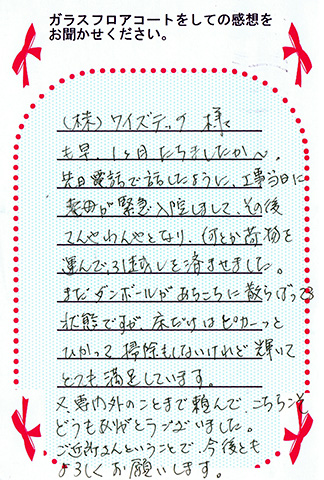 ガラスフロアコートをしての感想を
お聞かせください。
(株)ワイズテック 様
も早、1ヶ月たちましたか〜。
先日電話で話したように、工事当日に
義母が緊急入院しまして、その後
てんやわんやとなり、何とか荷物を
運んで、引越しを済ませました。
まだダンボールがあちこちに散らばってる
状態ですが、床だけはピカーっと
ひかって、掃除もしないけれど輝いて
とても満足しています。
又、専門外のことまで頼んで、こちらこそ
どうもありがとうございました。
ご近所さんということで、今後とも
よろしくお願いします。